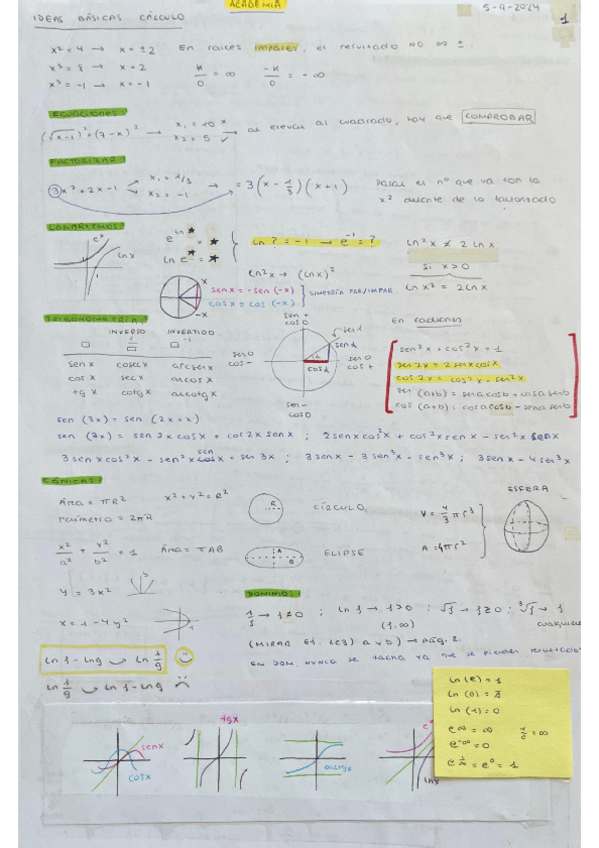 ACADEMIA
IDEAS BÁSICAS CÁLCULO
5-9-2024
1
x² = 4 → x = ±2 En raíces impares, el resultado no es ±
x³ = 8 → x = 2 K/0 = ∞ -K/0 = -∞
x³ = -1 → x = -1
ECUACIONES:
(√x-1)² = (7-x)² → x₁ = 10 × x₂ = 5 ✓ → al elevar al cuadrado, hay que COMPROBAR
FACTORIZAR:
3x²+2x-1 x₁ = 1/3 x₂ = -1 → = 3(x - 1/3)(x+1) Pasar el nº que va con la
x² delante de lo factorizado
LOGARITMOS:
eˣ lnx
e^ln★ = ★
ln e^★ = ★
ln ? = -1 → e⁻¹ = ?
ln²x ≠ 2 lnx
ln²x → (lnx)²
si x>0
ln x² = 2lnx
x
-x
senx = -sen(-x)
cosx = cos(-x)
SIMETRÍA PAR/IMPAR
TRIGONOMETRÍA:
INVERSO INVERTIDO
□ 1/□ □⁻¹
sen x cosecx arcsenx
cos x secx arccosx
tg x cotgx arccotgx
sen +
cos 0
sen 0
cos -
sen 0
cos +
sen -
cos 0
cos α
En radianes
sen²x + cos²x = 1
sen 2x = 2senxcosx
cos 2x = cos²x - sen²x
sen (a±b) = senacosb ± cosasenb
cos (a+b) = cosacosb - senasenb
sen (3x) = sen (2x+x)
sen (3x) = sen 2x cosx + cos2x senx ; 2senxcos²x + cos²xsenx - sen²x senx
3senxcos²x - sen²x senx = sen 3x ; 3senx - 3sen³x - sen³x ; 3senx - 4sen³x
CÓNICAS:
Área = πR² x² + y² = R²
Perímetro = 2πR
R
CÍRCULO
ESFERA
V = 4/3 πr³
A = 4πr²
x²/a² + y²/b² = 1 Área = πAB
A
B
ELIPSE
y = 3x²
x = 1 - 4y²
DOMINIO:
1/f → f≠0 ; ln f → f>0 ; √f → f≥0 ; ³√f → f
ln f - lng → ln f/g
ln f/g → ln f - lng
senx
cosx
tgx
arctgx
eˣ
lnx
ln (e) = 1
ln (0) = ∄
ln (1) = 0
e^∞ = ∞
e^-∞ = 0
e^1/∞ = e⁰ = 1